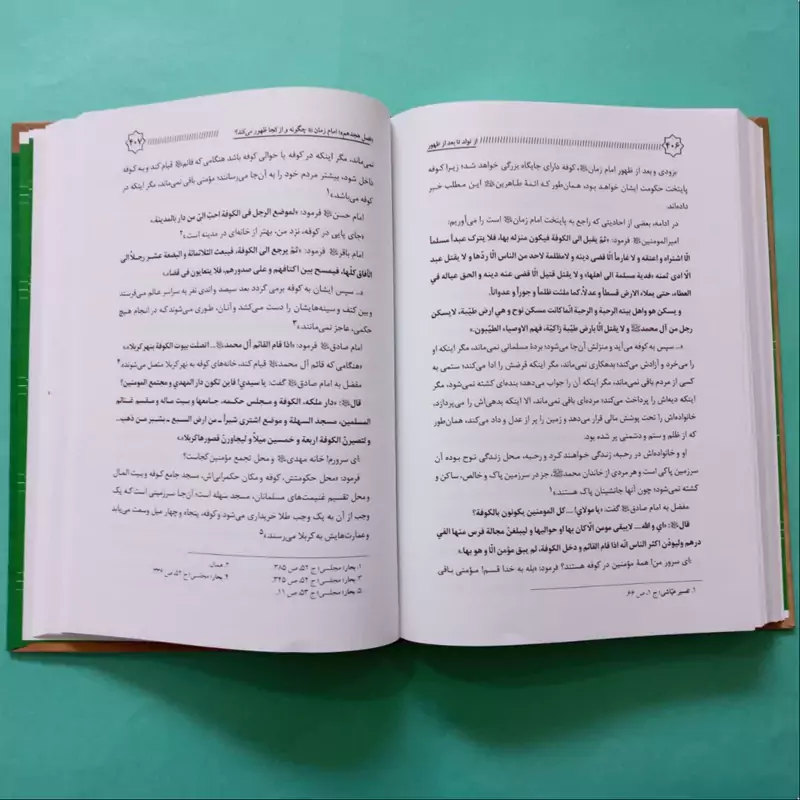 ۴۰۶
از تولد تا بعد از ظهور
بزودی و بعد از ظهور امام زمان، کوفه دارای جایگاه بزرگی خواهد شد؛ زیرا کوفه
پایتخت حکومت ایشان خواهد بود، همان‌طور که ائمهٔ طاهرین این مطلب خبر
داده‌اند.
در ادامه، بعضی از احادیثی که راجع به پایتخت امام زمان است را می‌آوریم:
امیرالمومنین فرمود: «ثمّ یقبل الی الکوفة فیکون منزله بها، فلا یترک عبداً مسلماً
الّا اشتراه و اعتقه و لا غارماً الّا قضی دینه و لامظلمة لاحد من الناس الّا ردّها و لا یقتل عبد
الّا ادی ثمنه «فدیة مسلمة الی اهلها» و لا یقتل قتیل الّا قضی عنه دینه و الحق عیاله فی
العطاء، حتی یملاء الارض قسطاً و عدلاً، کما ملئت ظلماً و جوراً و عدواناً.
و یسکن هو واهل بیته الرحبة و الرحبة انّما کانت مسکن نوح و هی ارض طیّبة، لایسکن
رجل من آل محمد و لا یقتل الّا بارض طیّبة زاکیّة، فهم الاوصیاء الطیّبون.»
«.. سپس به کوفه می‌آید و منزلش آن‌جا می‌شود؛ بردهٔ مسلمانی نمی‌ماند، مگر اینکه او
را می‌خرد و آزادش می‌کند؛ بدهکاری نمی‌ماند، مگر اینکه قرضش را ادا می‌کند؛ ستمی به
کسی از مردم باقی نمی‌ماند، مگر اینکه آن را جواب می‌دهد؛ بنده‌ای کشته نمی‌شود، مگر
اینکه دیه‌اش را پرداخت می‌کند؛ مرده‌ای باقی نمی‌ماند، الّا اینکه بدهی‌اش را می‌پردازد،
خانواده‌اش را تحت پوشش مالی قرار می‌دهد و زمین را پر از عدل و داد می‌کند، همان‌طور
که از ظلم و ستم و دشمنی پر شده بود.
او و خانواده‌اش در رحبه، زندگی خواهند کرد و رحبه، محل زندگی نوح بوده آن
سرزمین پاکی است و هر مردی از خاندان محمد، جز در سرزمین پاک و خالص، ساکن و
کشته نمی‌شود؛ چون آنها جانشینان پاک هستند.»۱
مفضل به امام صادق گفت: «یا مولای! ... کل المومنین یکونون بالکوفة؟
قال: «ای و الله... لایبقی مومن الّا کان بها او حوالیها و لیبلغنّ مجالة فرس منها الفی
درهم ولیودّن اکثر الناس انّه اذا قام القائم و دخل الکوفة، لم یبق مؤمن الّا و هو بها.»
«ای سرور من! همهٔ مؤمنین در کوفه هستند؟ فرمود: «بله به خدا قسم! مؤمنی باقی
۱. تفسیر عیّاشی؛ ج ۱، ص ۶۶.
فصل هجدهم؛ امام زمان چگونه و از کجا ظهور می‌کند؟
۴۰۷
نمی‌ماند، مگر اینکه در کوفه یا حوالی کوفه باشد هنگامی که قائم قیام کند و به کوفه
داخل شود، بیشتر مردم خود را به آن‌جا می‌رسانند؛ مؤمنی باقی نمی‌ماند، مگر اینکه در
کوفه می‌باشد.»۱
امام حسن فرمود: «لموضع الرجل فی الکوفة احبّ الیّ من دار بالمدینة.»
«جای پایی در کوفه، نزد من، بهتر از خانه‌ای در مدینه است.»۲
امام باقر فرمود: «ثمّ یرجع الی الکوفة، فیبعث الثلاثمائة و البضعة عشر رجلاً الی
الآفاق کلّها، فیمسح بین اکتافهم و علی صدورهم، فلا یتعایون فی قضاء.»
«.. سپس ایشان به کوفه برمی گردد بعد سیصد واندی نفر به سراسر عالم می‌فرستد
و بین کتف و سینه‌هایشان را دست می‌کشد و آنان، طوری می‌شوند که در انجام هیچ
حکمی، عاجز نمی‌مانند.»۳
امام صادق فرمود: «اذا قام القائم آل محمد... اتصلت بیوت الکوفة بنهر کربلا.»
«هنگامی که قائم آل محمد قیام کند، خانه‌های کوفه به نهر کربلا متصل می‌شوند.۴
مفضل به امام صادق گفت: «یا سیدی! فاین تکون دار المهدی و مجتمع المومنین؟
قال: «دار ملکه، الکوفة و مجلس حکمه، جامعها و بیت ماله و مقسم غنائم
المسلمین، مسجد السهلة و موضع اشتری شبراً من ارض السبع بشبر من ذهب...
و لتصیرنّ الکوفة اربعة و خمسین میلاً و لیجاورنّ قصورها کربلاء.»
«ای سرورم! خانه مهدی و محل تجمع مؤمنین کجاست؟
فرمود: «محل حکومتش، کوفه و مکان حکمرانی‌اش، مسجد جامع کوفه و بیت المال
و محل تقسیم غنیمت‌های مسلمانان، مسجد سهله است؛ آن‌جا سرزمینی است که یک
وجب از آن به یک وجب طلا خریداری می‌شود وکوفه، پنجاه و چهار میل وسعت می‌یابد
و عمارت‌هایش به کربلا می‌رسند.»۵
۱. بحار؛ مجلسی؛ ج ۵۲، ص ۳۸۵
۲. همان.
۳. بحار؛ مجلسی؛ ج ۵۲، ص ۳۴۵
۴. بحار؛ مجلسی؛ ج ۵۲، ص ۳۳۷
۵. بحار؛ مجلسی؛ ج ۵۳، ص ۱۱.